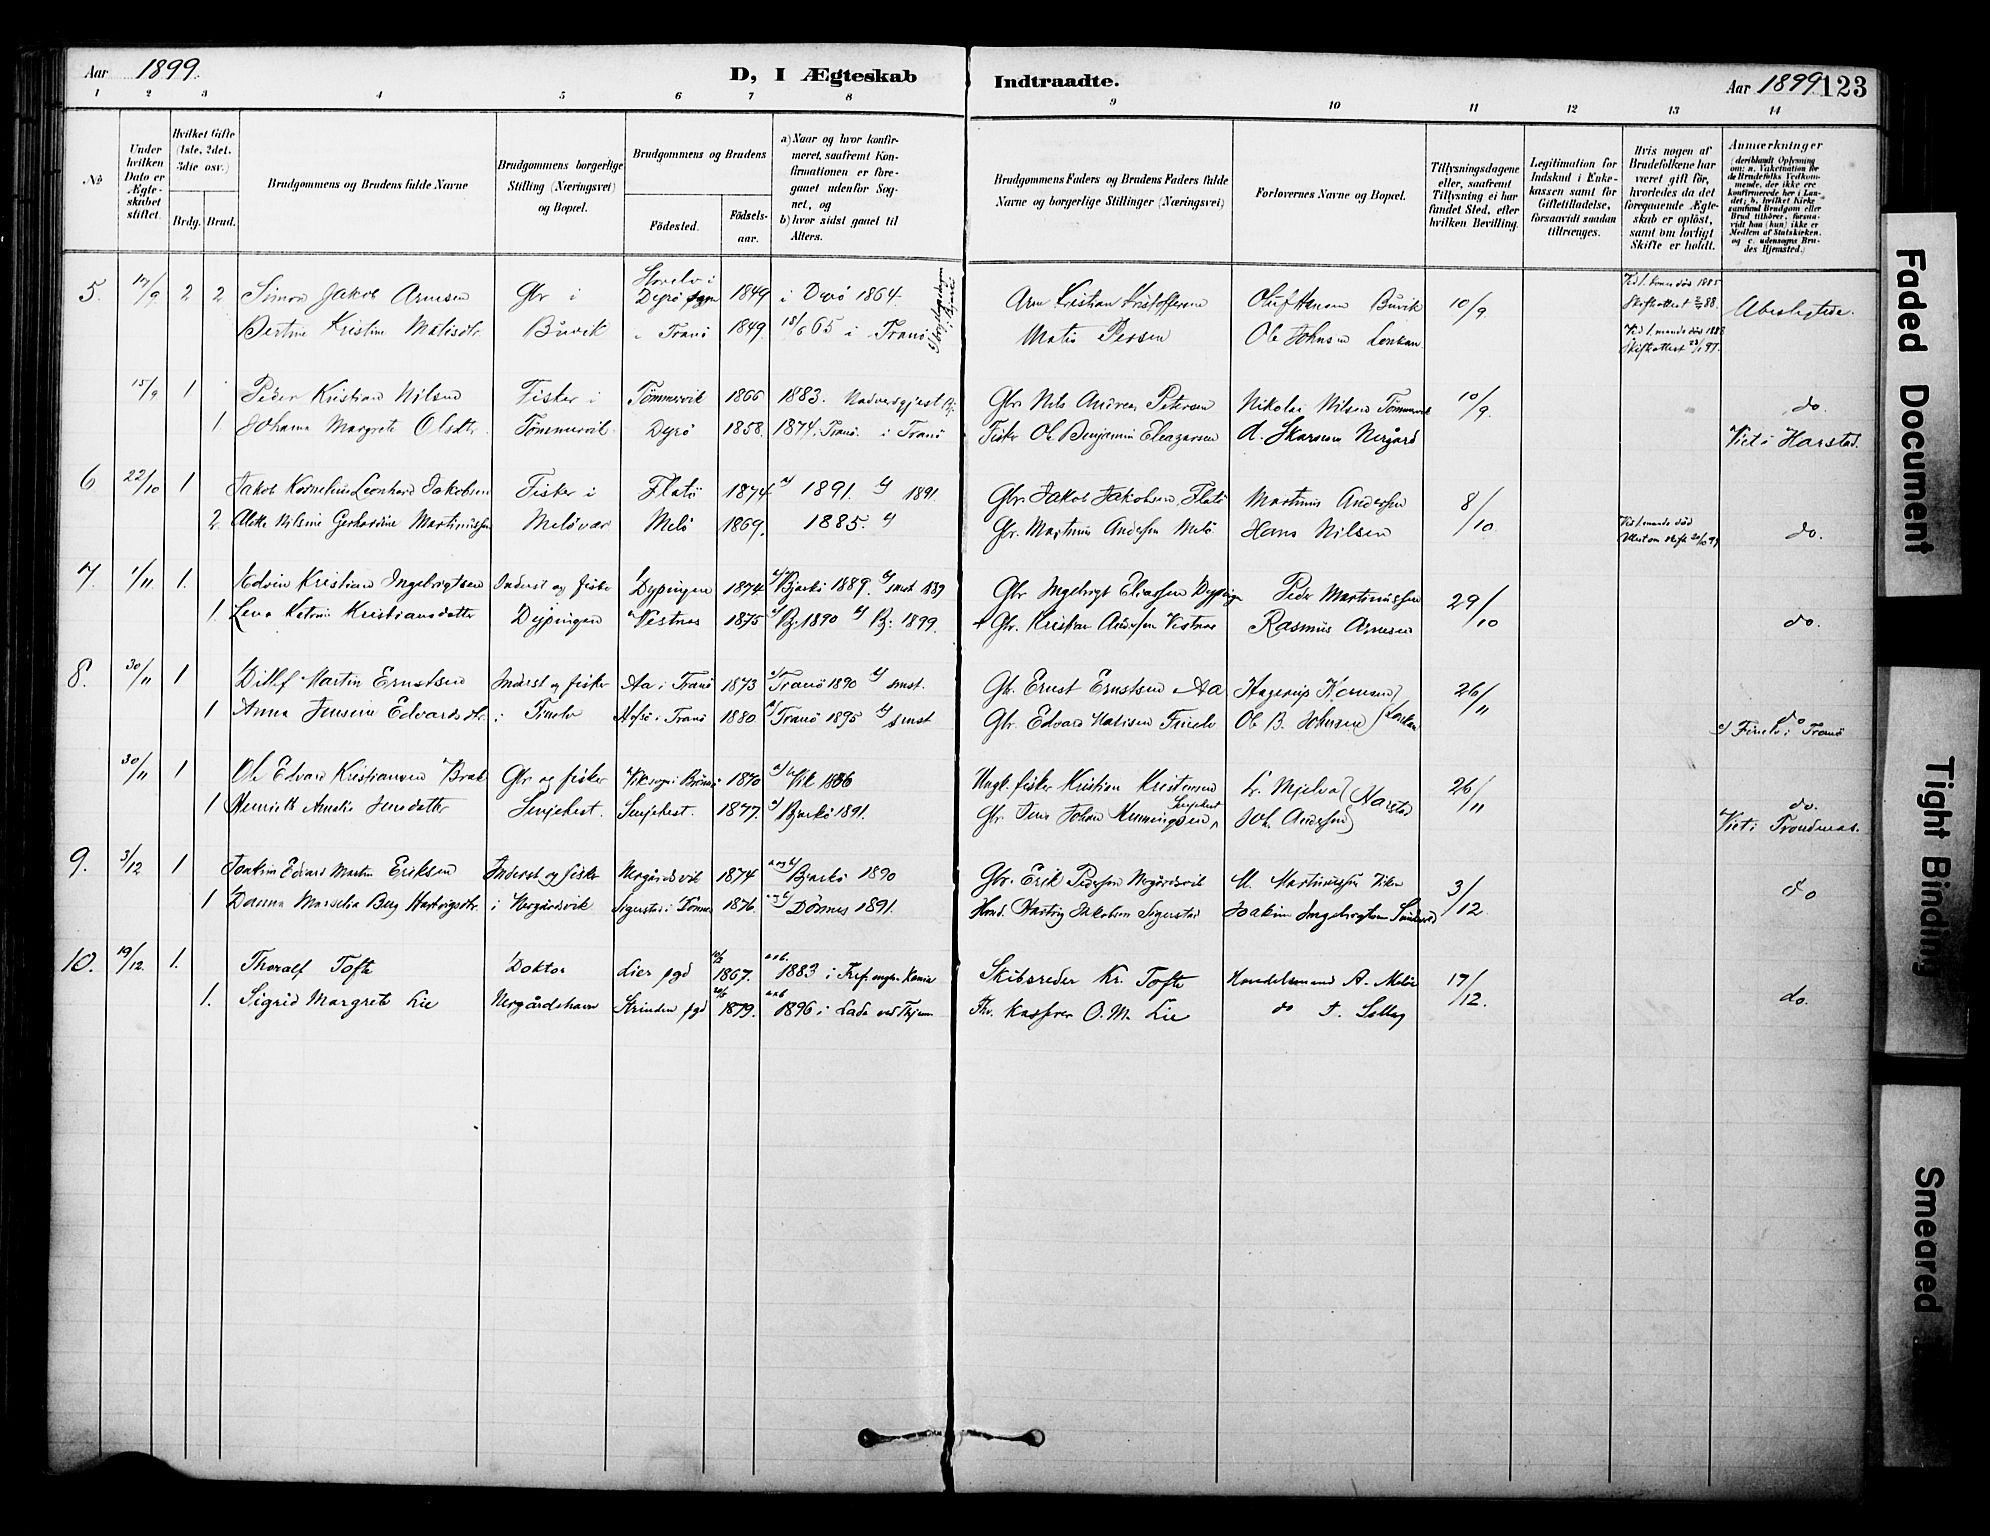 Aar 1899.
D, I Ægteskab Indtraadte.
Aar 1899 123
1 2 3 4 5 6 7 8 9 10 11 12 13 14
No.
Under hvilken Dato er Ægteskabet stiftet.
Hvilket Gifte (1ste, 2det, 3die osv.)
Brdg. Brud.
Brudgommens og Brudens fulde Navne
Brudgommens borgerlige Stilling (Næringsvei) og Bopæl.
Brudgommens og Brudens
Fødested.
Fødselsaar.
a) Naar og hvor konfirmeret, saafremt Konfirmationen er foregaaet udenfor Sognet, og
b) hvor sidst gaaet til Alters.
Brudgommens Faders og Brudens Faders fulde Navne og borgerlige Stillinger (Næringsvei)
Forlovernes Navne og Bopæl.
Tillysningsdagene eller, saafremt Tillysning ei har fundet Sted, efter hvilken Bevilling.
Legitimation for Indskud i Enkekassen samt for Giftetilladelse, forsaavidt saadan tiltrænges.
Hvis nogen af Brudefolkene har været gift før, hvorledes da det foregaaende Ægteskab er opløst, samt om lovligt Skifte er holdt.
Anmærkninger
(deriblandt Oplysning om: a. Vakcination for de Brudefolks Vedkommende, der ikke ere konfirmerede her i Landet; b. hvilket Kirkesamfund Brudgom eller Brud tilhører, forsaavidt han (hun) ikke er Medlem af Statskirken. og c. udensogns Brudes Hjemsted.)
5. 17/9 2 2 Simon Jakob Arnesen Gbr i Storelv i Dyrö sogn 1849 i Dyrö 1864. Arn Kristian Kristoffersen Oluf Hansen Buvik 10/9 Ubeslegtede.
Bertine Kristine Matisdtr. Buvik Tranö 1849. 15/6 65 i Tranö Matis Persen Ole Johnsen Lenkan
15/9 1 Peder Kristian Nilsen Fisker i Tömmervik 1866 1883. Nadversgjest Bj. Gbr. Nils Andreas Petersen Nikolai Nilsen Tömmervik 10/9 do.
1 Johanna Margrete Olsdtr. Tömmervik Dyrö 1858. 1874. Tranö. i Tranö Fisker Ole Benjamin Eleazarsen A. Skarsem Nergård Viet i Harstad.
6 22/10 1 Jakob Kornelius Leonhard Jakobsen Fisker i Flatö 1874. a) 1891. b) 1891 Gbr. Jakob Jakobsen Flatö Martinus Andersen 8/10
2. Alette Nilsine Gerhardine Martinussen Melövær Melö 1869. 1885. Gbr. Martinus Andersen Melö Hans Nilsen do.
7. 1/11 1. Edvin Kristian Ingebrigtsen Inderst og fisker i Dypingen 1874 a) Bjarkö 1889. b) smst 1889 Gbr Ingebrigt Eliassen Dypingen Peder Martinussen 29/10
1 Lena Katrine Kristiansdatter Dypingen Vestnes 1875 a) Bj. 1890 b) Bj: 1899. Gbr. Kristian Andersen Vestnes Rasmus Arnesen do.
8. 30/11 1 Ditlef Martin Ernstsen Inderst og fisker Aa i Tranö 1873 a) Tranö 1890 b) smst. Gbr. Ernst Ernstsen Aa Hagerup 26/11
1 Anna Jensine Edvardsdtr. i Finelv i Tranö 1880 a) Tranö 1895 b) smst Gbr. Edvard Matisen Finelv Ole B. Johnsen do c) Finelv i Tranö
30/11 1 Ole Edvard Kristiansen Gbr og fisker Vik sogn i Brönnö 1870 a) Vik 1886 Ungk. fisker Kristian Kristensen L. Mjelva Harstad 26/11
1 Henriette Amalie Jensdatter Senjehest. Senjehest. 1877. a) Bjarkö 1891. Gbr. Jens Johan Henningsen, Senjehest Joh. Andersen do. Viet i Trondenæs.
9. 3/12 1 Joakim Edvard Martin Eriksen Inderst og fisker Nergårdsvik 1874 a og b) Bjarkö 1890 Gbr. Erik Pedersen Nergårdsvik M. Martinussen Viken 3/12
1 Dorina Marselie Berg Hartvigsdtr. i Nergårdsvik Sigerstad i Dönnes 1876. Dönnes 1891. Hmd. Hartvig Jakobsen Sigerstad Joakim Ingebrigtsen do
10. 19/12. 1. Thoralf Tofte Doktor Lier pgd 1867. a & b. 1883 i Kr. Tofte Skibsreder Handelsmand A. Melö 17/12.
1. Sigrid Margrete Lie Nergårdshavn Strinden pgd 1879. a & b 1896 i Lade ved Thjem Th. kasserer O. M. Lie do do.
Faded Document
Tight Binding
Smeared